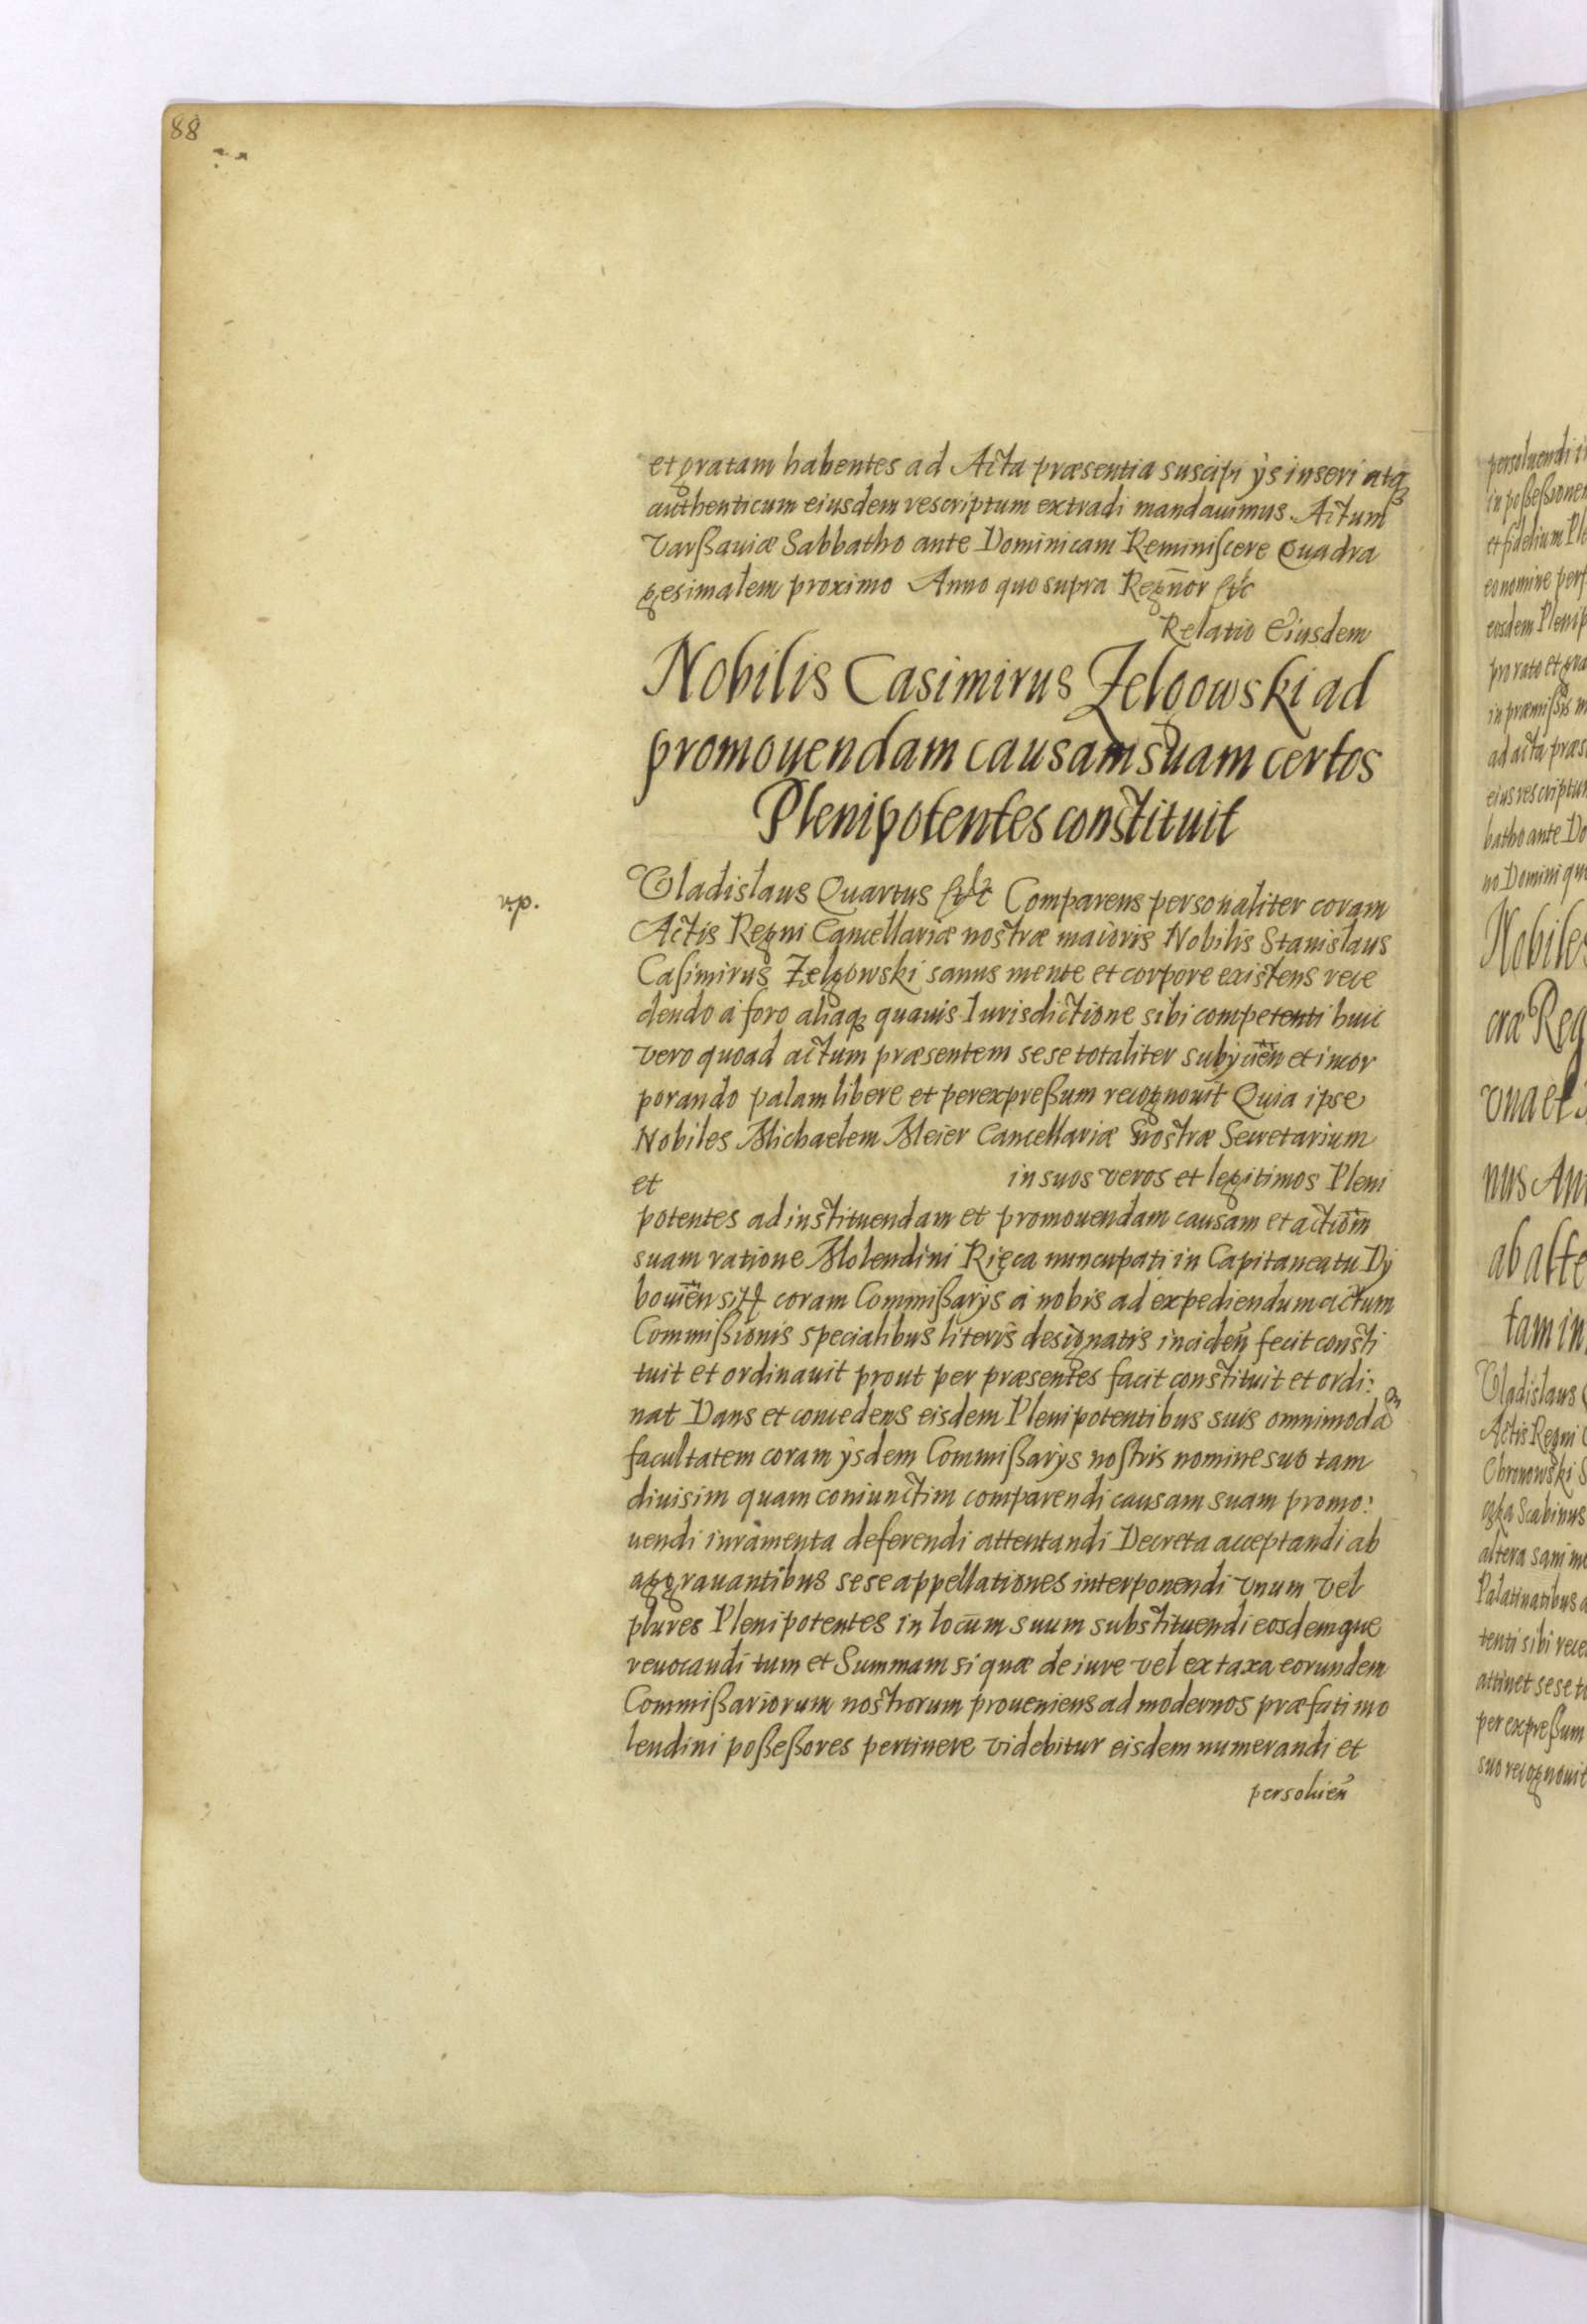 88
et gratam habentes ad Acta præsentia suscipi ÿs inseri atqȝ
authenticum eiusdem rescriptum extradi mandauimus. Actum
Varßauiæ Sabbatho ante Dominicam Reminiſcere Quadra
gesimalem proximo Anno quo supra Regn̄or etc
Relatio Eiusdem
Nobilis Casimirus Zelgowski ad
promouendam causam suam certos
Plenipotentes constituit
Vladislaus Quartus etc Comparens personaliter coram
Actis Regni Cancellariæ nostræ maioris Nobilis Stanislaus
Caſimirus Zelgowski sanus mente et corpore existens rece
dendo á foro aliaqȝ quauis Iurisdictione sibi competenti huic
vero quoad actum præsentem sese totaliter subÿcien̄ et incor
porando palam libere et per expreßum recognouit Quia ipse
Nobiles Michaelem Meier Cancellariæ nostræ Secretarium
et in suos veros et legitimos Pleni
potentes ad instituendam et promouendam causam et actiom̄
suam ratione Molendini Rięca nuncupati in Capitaneatu Dy
bouien̄si coram Commißarÿs á nobis ad expediendum actum
Commißionis specialibus literis designatis inciden̄ fecit consti
tuit et ordinauit prout per præsentes facit constituit et ordi:
nat Dans et concedens eisdem Plenipotentibus suis omnimodā
facultatem coram ÿsdem Commißarÿs noſtris nomine suo tam
diuisim quam coniunctim comparendi causam suam promo:
uendi iuramenta deferendi attentandi Decreta acceptandi ab
aggrauantibus sese appellationes interponendi vnum vel
plures Plenipotentes in locum suum substituendi eosdemque
reuocandi tum et Summam si quæ de iure vel ex taxa eorundem
Commißariorum nostrorum proueniens ad modernos præfati mo
lendini poßeßores pertinere videbitur eisdem numerandi et
persoluen̄